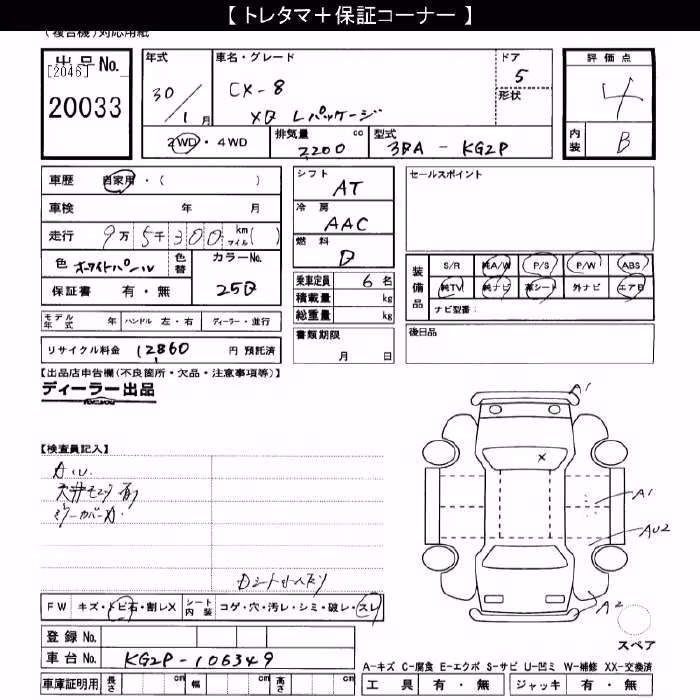 【 トレタマ＋保証コーナー 】
(複合機)対応用紙
出品No.
[2046]
20033
年式
30/1月
車名・グレード
CX-8
XD Lパッケージ
ドア
5
形状
評価点
4
内装
B
2WD・4WD
排気量
2200 cc
型式
3DA - KG2P
車歴 自家用・( )
車検 年 月
走行 9万5千300 km マイル( )
色 ホワイトパール
色替
カラーNo.
25D
保証書 有・無
モデル年式 年
ハンドル 左・右
ディーラー・並行
リサイクル料金 12860 円 預託済
シフト
AT
冷房
AAC
燃料
D
乗車定員 6 名
積載量 kg
総重量 kg
書類期限
月 日
セールスポイント
装備品
S/R 純A/W P/S P/W ABS
純TV 純ナビ 革シート 外ナビ エアB
ナビ型番:
後日品
【出品店申告欄(不良箇所・欠品・注意事項等)】
ディーラー出品
【検査員記入】
天井モニター有
ミラーカバーA
Dシートサスリ
A1
A1
AU2
A2
スペア
FW キズ・トビ石・割レX
シート内装 コゲ・穴・汚レ・シミ・破レ・スレ
登録 No.
車台 No. KG2P-106349
車庫証明用 長さ cm 幅 cm 高さ cm
A-キズ C-腐食 E-エクボ S-サビ U-凹ミ W-補修 XX-交換済
工具 有・無 ジャッキ 有・無